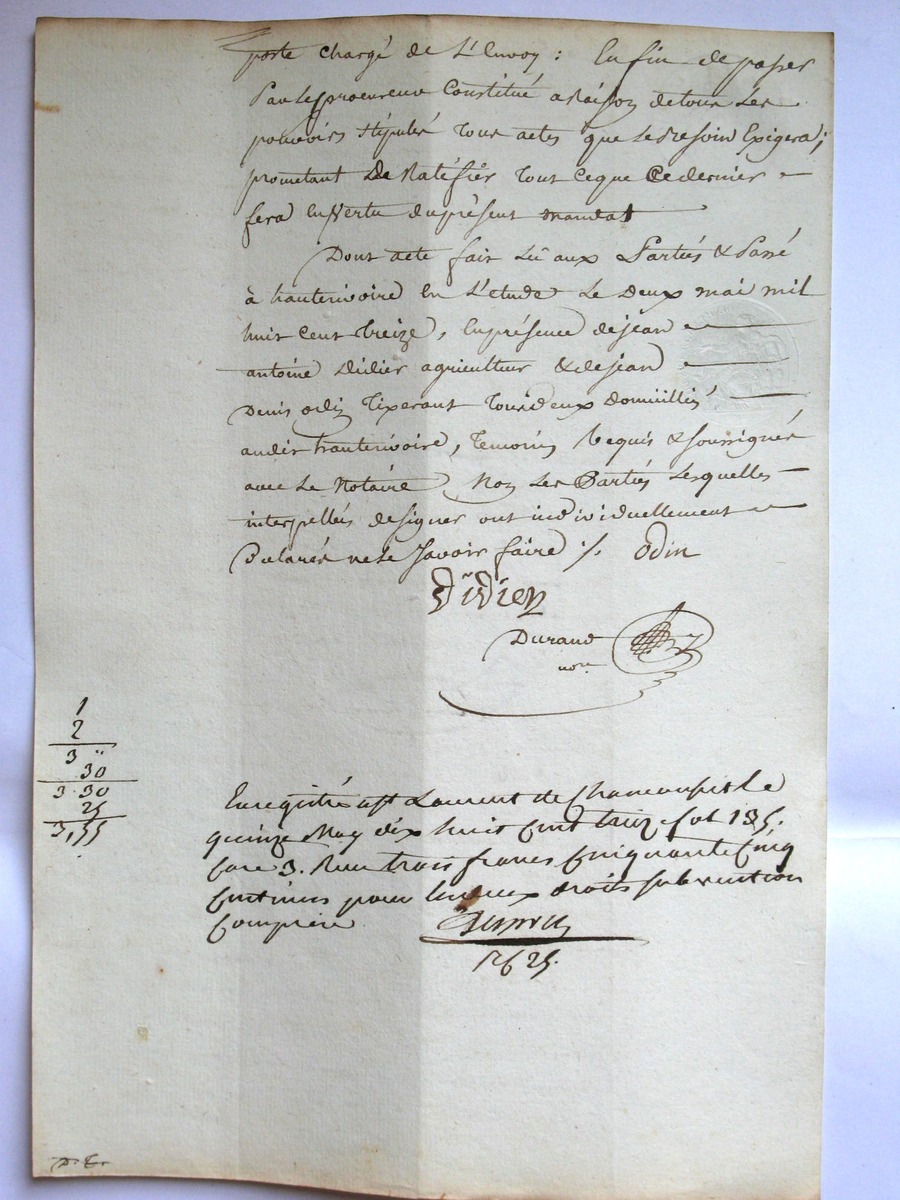 poste chargé de L'Envoy : Enfin de passer
Par Le procureur Constitué a Raison de tous Les
pouvoirs stipulés Tous actes que Le Besoin Exigera ;
prometant De Ratéfiér Tout ceque Ce dernier
fera En Vertu du présent mandat
Dont acte fait Lû aux Partiés & Passé
à hauterivoire En L'etude Le Deux mai mil
huit Cent Treize, En présence de jean
antoine Didier agriculteur & de jean
Denis odin Tixerant Tous deux Domicilliés
audit hauterivoire, Temoins Requis & soussignés
avec Le Notaire Non Les Partiés Lesquelles
interpellées de signer ont individuellement
Declarés ne Le Savoir faire ./. Odin
Didier
Durand
nore
1
2
3 "
30
3 30
25
3,55
Enregistré a St Laurent de Chamousset Le
quinze May dix huit Cent treize fol 135.
Case 3. Reçu trois francs Cinquante Cinq
Centimes pour les deux droits subvention
Comprise
1625.
D. Tr.